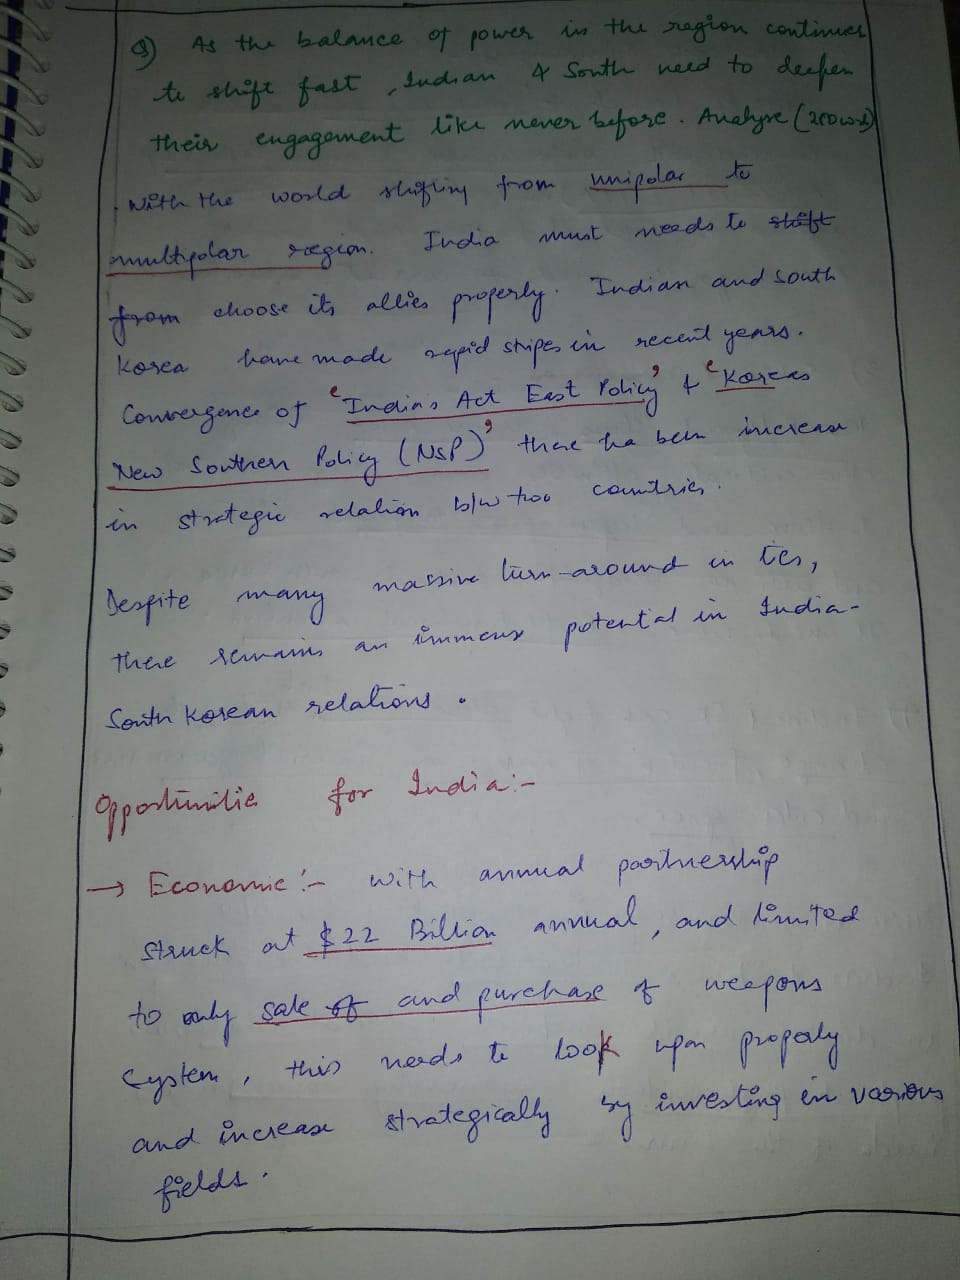 Q) As the balance of power in the region continues
to shift fast, Indian & South need to deepen
their engagement like never before. Analyse (250 words)
With the world shifting from unipolar to
multipolar region. India must needs to shift
from choose its allies properly. Indian and South
Korea have made rapid stripes in recent years.
Convergence of 'India's Act East Policy' & 'Koreas
New Southern Policy (NSP)' there ha been increase
in strategic relation b/w two countries.
Despite many massive turn-around in ties,
there remains an immense potential in India-
South Korean relations.
Opportunities for India:-
→ Economic:- with annual partnership
struck at $22 Billion annual, and limited
to only sale of and purchase of weapons
system, this needs to look upon properly
and increase strategically by investing in various
fields.